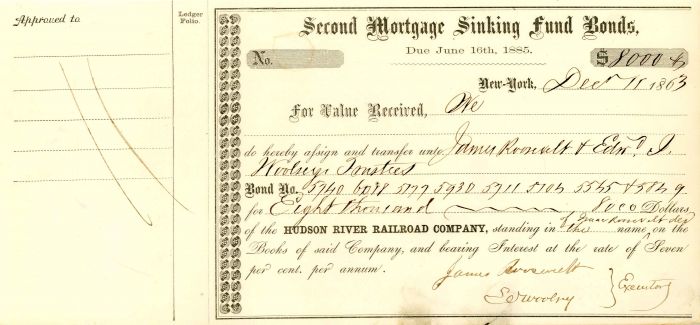 Approved to
Ledger
Folio.
Second Mortgage Sinking Fund Bonds,
Due June 16th, 1885.
No.
$8000
New-York, Decr 11 1863
For Value Received, We
do hereby assign and transfer unto James Roosevelt & Edwd J.
Woolsey Trustees
Bond No. 5940 6088 5177 5930 5711 5104 5545 & 5849
for Eight thousand 8000 Dollars
of Isaac Roosevelt
of the HUDSON RIVER RAILROAD COMPANY, standing in the name on the
Books of said Company, and bearing Interest at the rate of Seven
per cent. per annum.
James Roosevelt
Woolsey
Executors